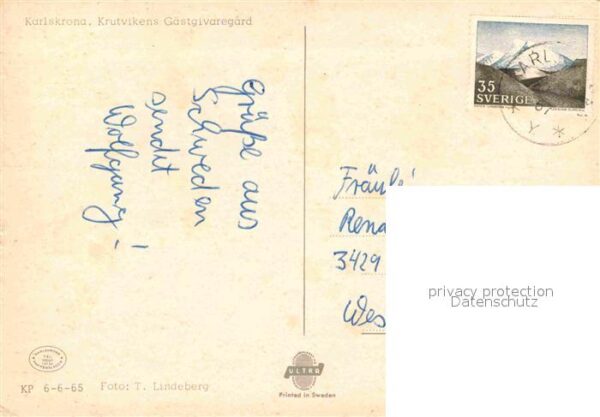 Karlskrona. Krutvikens Gästgivaregård
35
SVERIGE
Grüße aus
Schweden
sendet
Wolfgang!
Fräul
Rena
3429
Wes
privacy protection
Datenschutz
ULTRA
Printed in Sweden
KP 6-6-65 Foto: T. Lindeberg